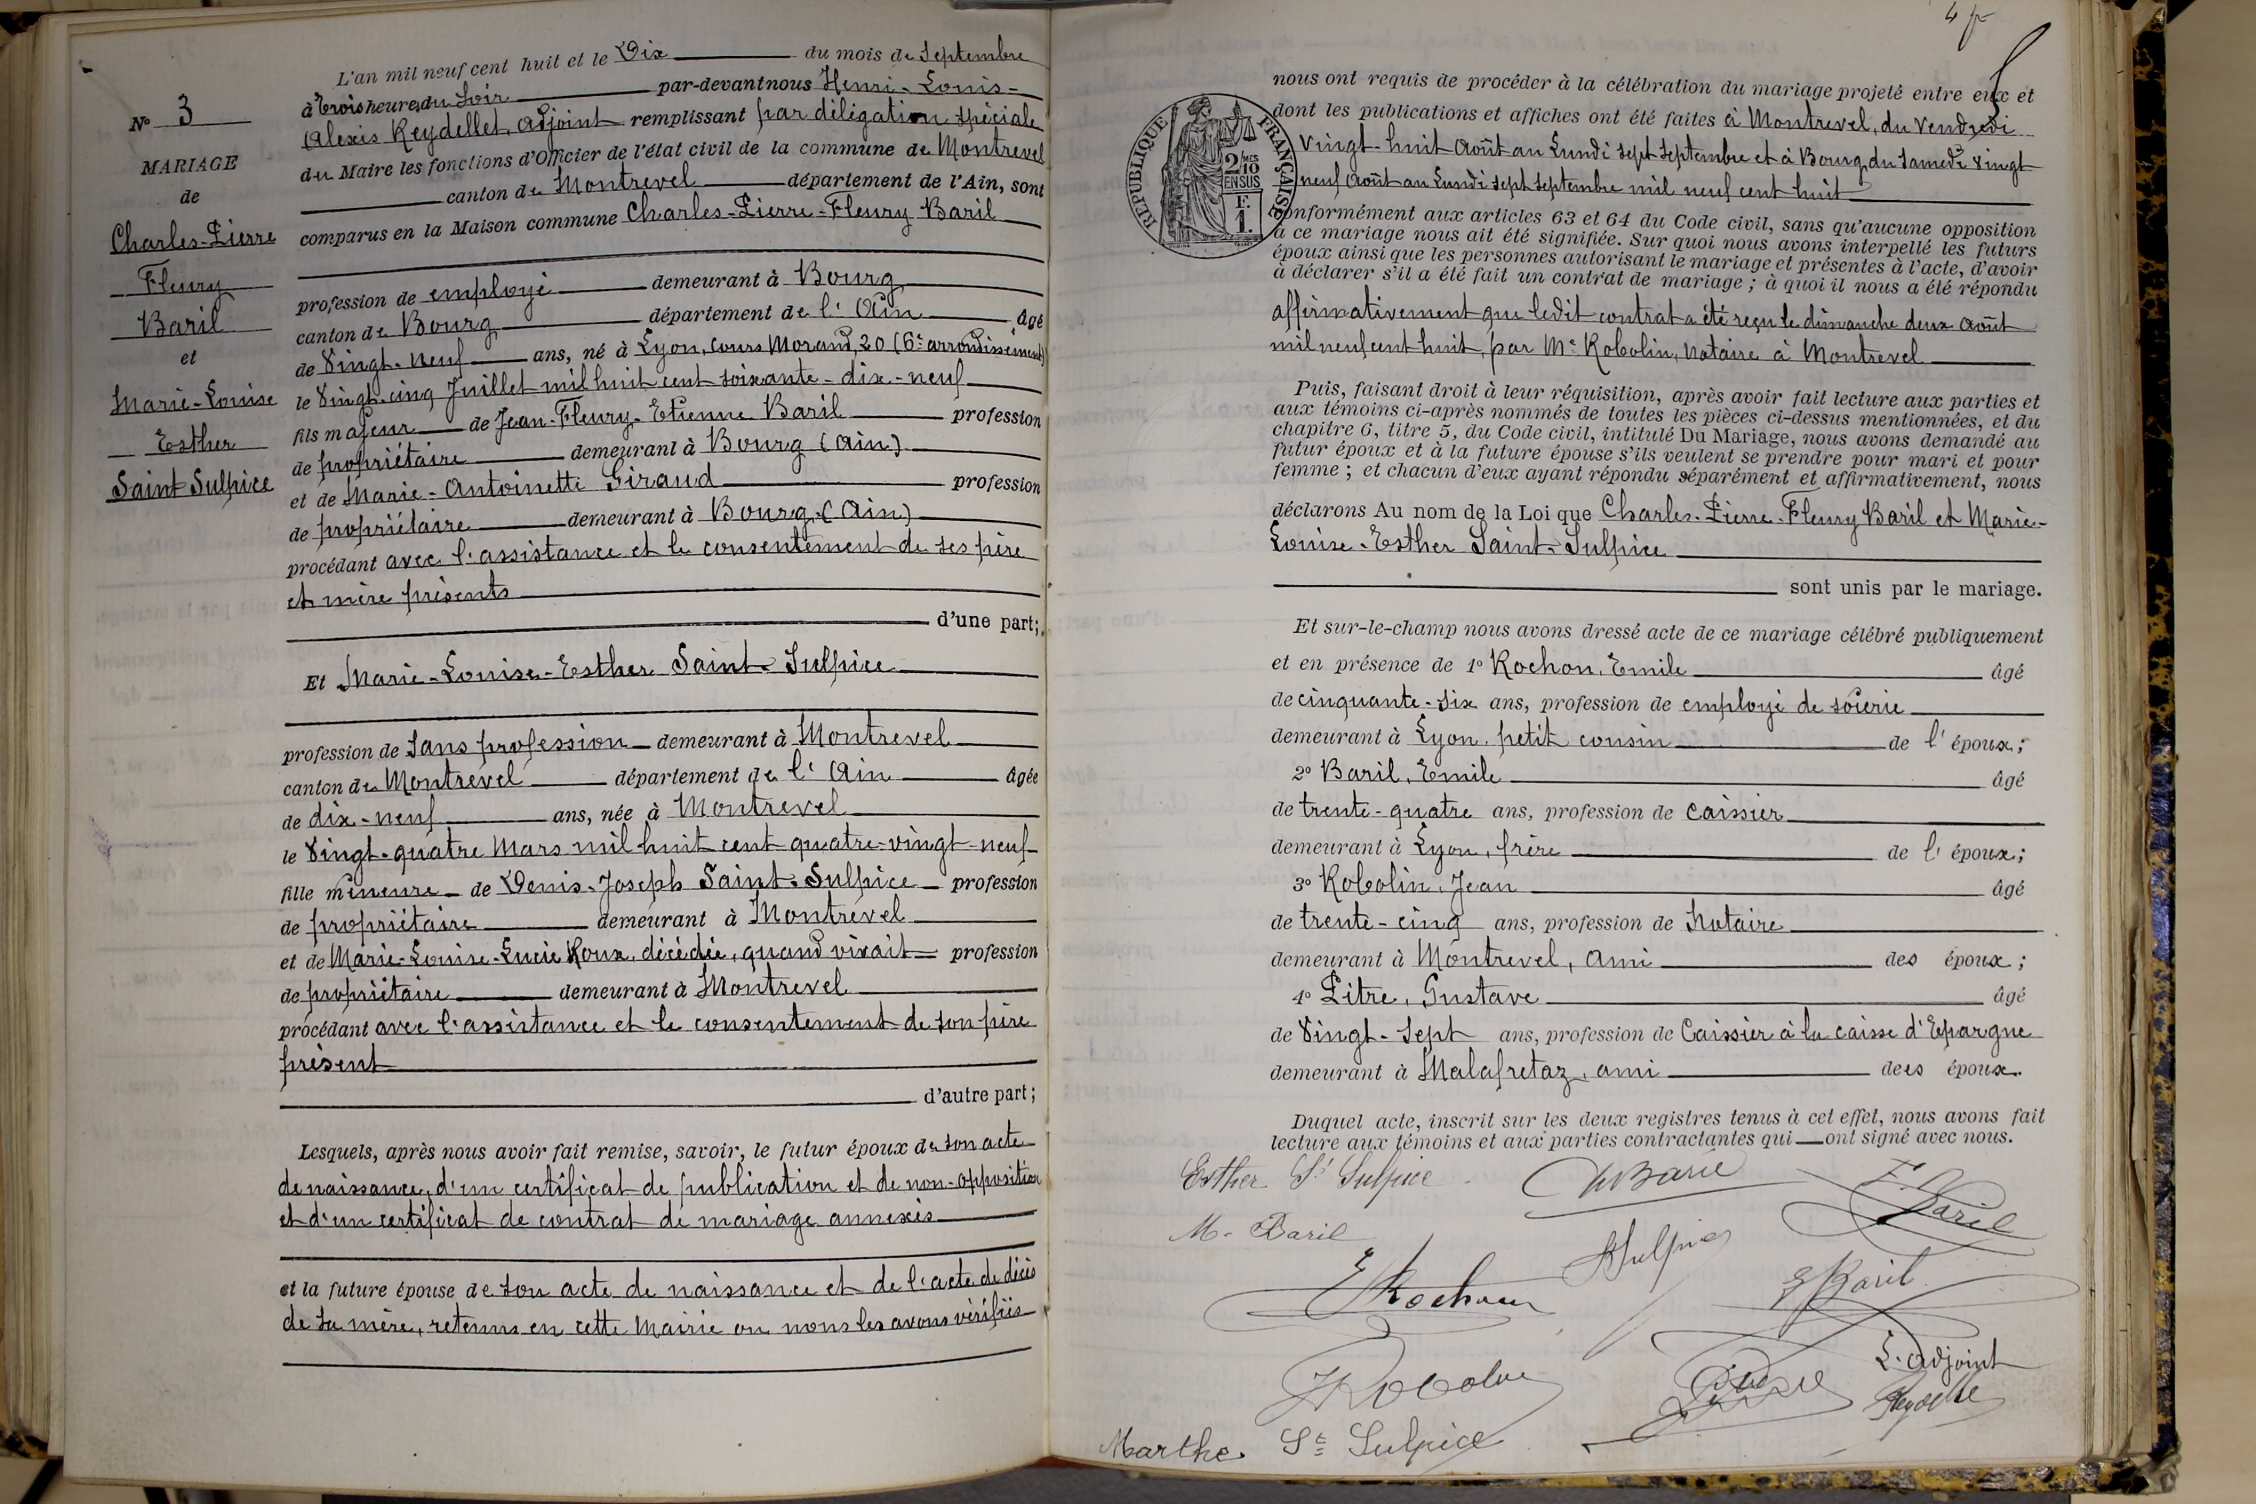 L'an mil neuf cent huit et le Dix du mois de Septembre
à Trois heures du Soir par-devant nous Henri-Louis-
Alexis Reydellet, adjoint remplissant par délégation spéciale
du Maire les fonctions d'Officier de l'état civil de la commune de Montrevel
canton de Montrevel département de l'Ain, sont
comparus en la Maison commune Charles-Pierre-Fleury Baril
profession de employé demeurant à Bourg
canton de Bourg département de l'Ain âgé
de Vingt-neuf ans, né à Lyon, cours Morand, 20 (6e arrondissement)
le Vingt-cinq Juillet mil huit cent soixante-dix-neuf
fils majeur de Jean-Fleury-Etienne Baril profession
de propriétaire demeurant à Bourg (Ain)
et de Marie-Antoinette Giraud profession
de propriétaire demeurant à Bourg (Ain)
procédant avec l'assistance et le consentement de ses père
et mère présents
d'une part;
Et Marie-Louise-Esther Saint-Sulpice
profession de Sans profession demeurant à Montrevel
canton de Montrevel département de l'Ain âgée
de dix-neuf ans, née à Montrevel
le Vingt-quatre Mars mil huit cent quatre-vingt-neuf
fille mineure de Denis-Joseph Saint-Sulpice profession
de propriétaire demeurant à Montrevel
et de Marie-Louise-Lucie Roux, décédée, quand vivait profession
de propriétaire demeurant à Montrevel
procédant avec l'assistance et le consentement de son père
présent
d'autre part;
Lesquels, après nous avoir fait remise, savoir, le futur époux de son acte
de naissance, d'un certificat de publication et de non-opposition
et d'un certificat de contrat de mariage annexés
et la future épouse de son acte de naissance et de l'acte de décès
de sa mère, retenus en cette Mairie où nous les avons vérifiés
No 3
MARIAGE
de
Charles-Pierre
Fleury
Baril
et
Marie-Louise
Esther
Saint Sulpice
4 fr
RÉPUBLIQUE FRANÇAISE
2/10 MES
EN SUS
F.
1.
nous ont requis de procéder à la célébration du mariage projeté entre eux et
dont les publications et affiches ont été faites à Montrevel, du Vendredi
Vingt-huit Août au Lundi sept Septembre et à Bourg du Samedi vingt
neuf Août au Lundi sept Septembre mil neuf cent huit
conformément aux articles 63 et 64 du Code civil, sans qu'aucune opposition
à ce mariage nous ait été signifiée. Sur quoi nous avons interpellé les futurs
époux ainsi que les personnes autorisant le mariage et présentes à l'acte, d'avoir
à déclarer s'il a été fait un contrat de mariage; à quoi il nous a été répondu
affirmativement que ledit contrat a été reçu le dimanche deux Août
mil neuf cent huit, par Me Robolin, Notaire à Montrevel
Puis, faisant droit à leur réquisition, après avoir fait lecture aux parties et
aux témoins ci-après nommés de toutes les pièces ci-dessus mentionnées, et du
chapitre 6, titre 5, du Code civil, intitulé Du Mariage, nous avons demandé au
futur époux et à la future épouse s'ils veulent se prendre pour mari et pour
femme; et chacun d'eux ayant répondu séparément et affirmativement, nous
déclarons Au nom de la Loi que Charles-Pierre-Fleury Baril et Marie-
Louise-Esther Saint-Sulpice
sont unis par le mariage.
Et sur-le-champ nous avons dressé acte de ce mariage célébré publiquement
et en présence de 1o Rochon, Emile âgé
de cinquante-six ans, profession de employé de soierie
demeurant à Lyon, petit cousin de l'époux;
2o Baril, Emile âgé
de trente-quatre ans, profession de caissier
demeurant à Lyon, frère de l'époux;
3o Robolin, Jean âgé
de trente-cinq ans, profession de Notaire
demeurant à Montrevel, ami des époux;
4o Pitre, Gustave âgé
de Vingt-Sept ans, profession de Caissier à la caisse d'Epargne
demeurant à Malafretaz, ami des époux.
Duquel acte, inscrit sur les deux registres tenus à cet effet, nous avons fait
lecture aux témoins et aux parties contractantes qui ont signé avec nous.
Esther St Sulpice Ch Baril F. Baril
M. Baril
E Rochon Sulpice E Baril
J Robolin Pitre L'adjoint
Reydellet
Marthe St Sulpice